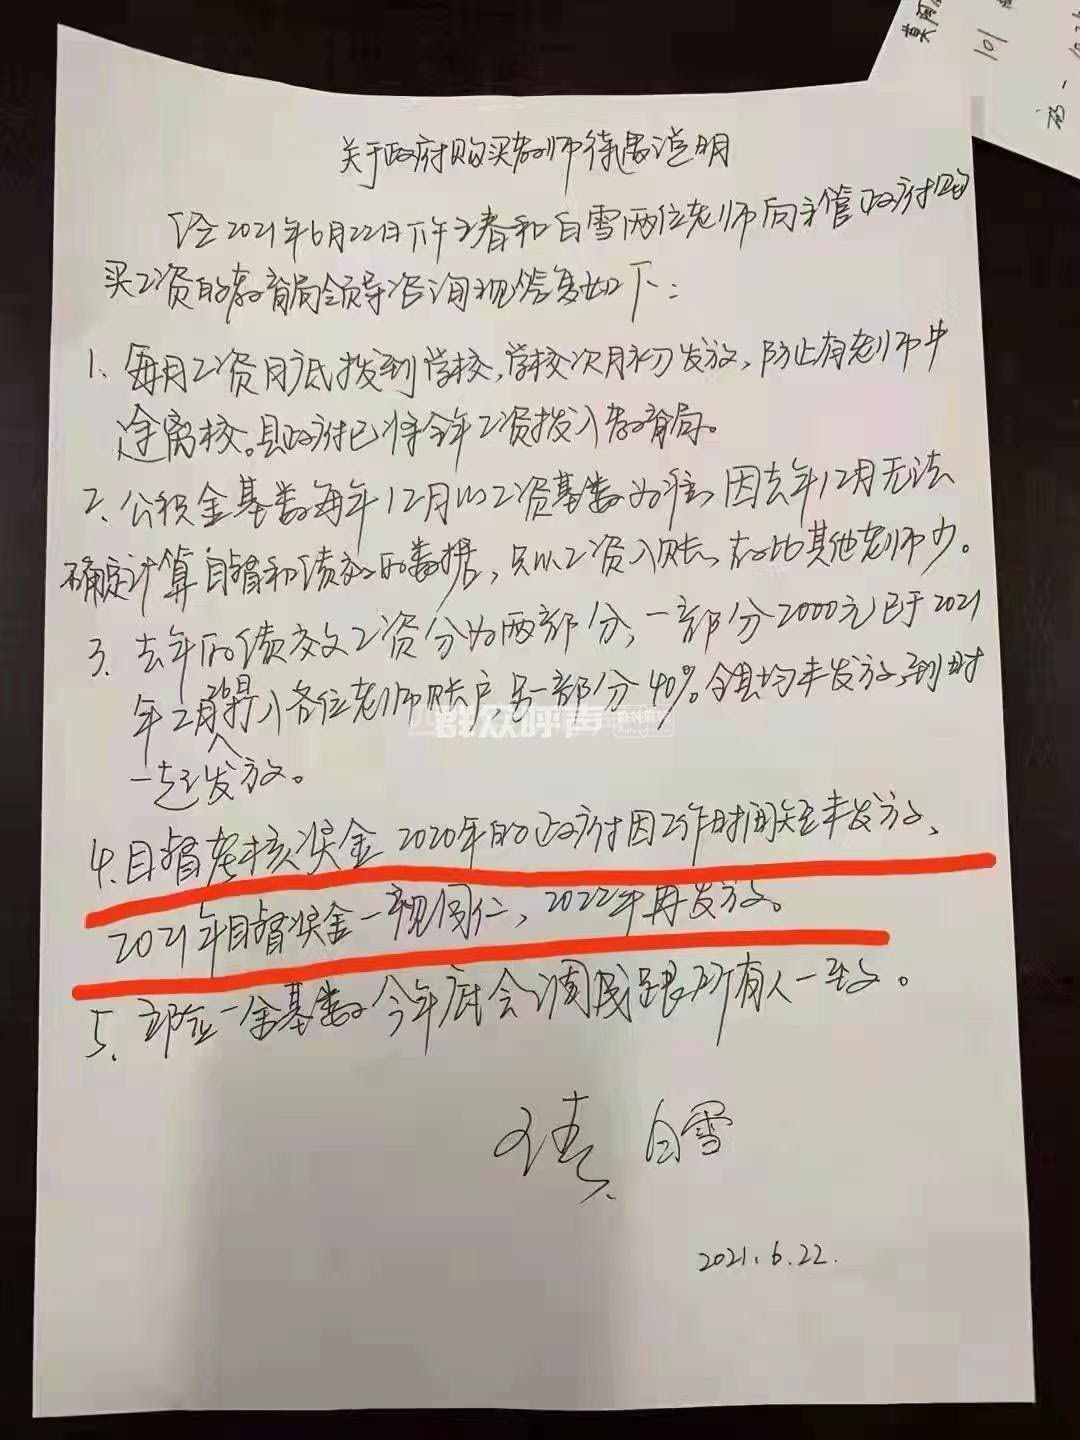 关于政府购买教师待遇说明
经2021年6月22日下午王春和白雪两位老师向主管政府购
买工资的教育局领导咨询现答复如下:
1、每月工资月底拨到学校,学校次月初发放,防止有老师中
途离校。县政府已将全年工资拨入教育局。
2、公积金基数每年12月的工资基数为准,因去年12月无法
确定计算目督和绩效的数据,只以工资入账,故比其他老师少。
3、去年的绩效工资分为两部分,一部分2000元已于2021
年2月打入各位老师账户,另一部分40%全县均未发放,到时
一起发放。
4、目督考核奖金2020年的政府因工作时间短未发放、
2021年目督奖金一视同仁,2022年再发放。
5、一金基数今年底会调成跟所有人一致。
白雪
2021.6.22.
群众呼声
101